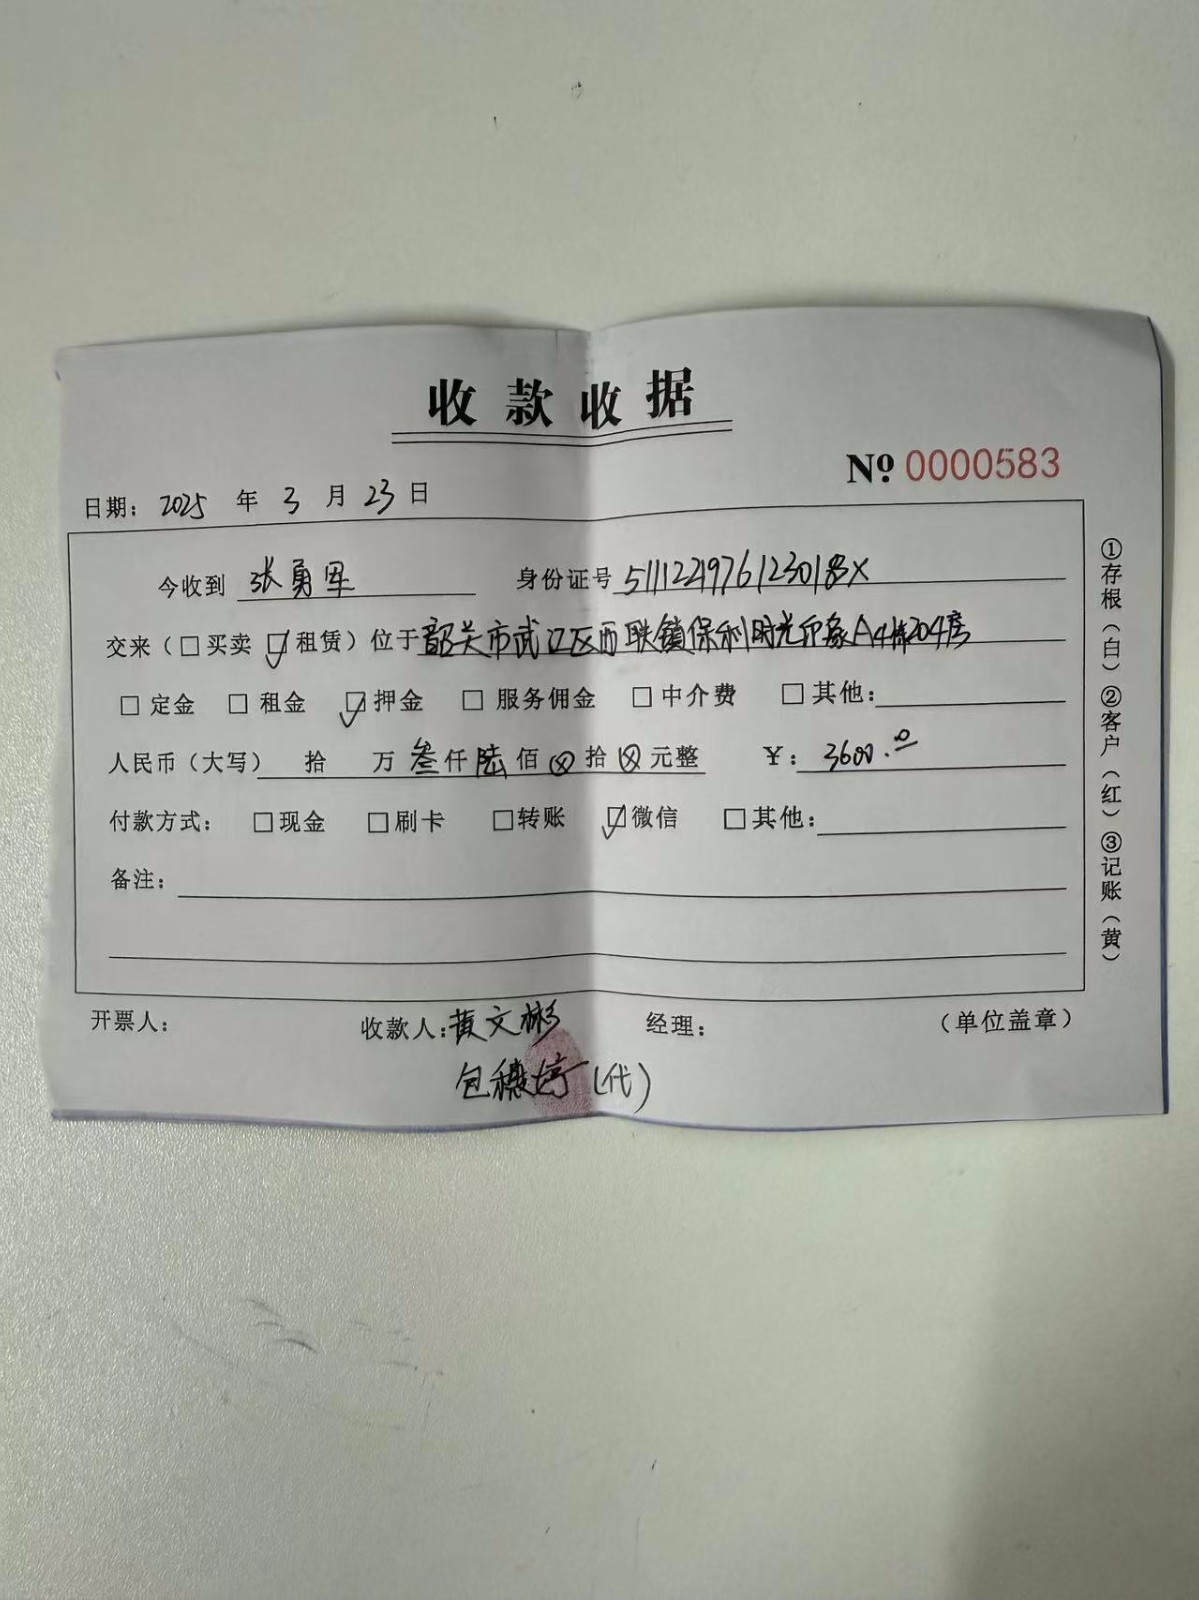 收款收据
№ 0000583
日期：2025 年 3 月 23 日
今收到 张勇军 身份证号 51112219761230183X
交来（□买卖 ☑租赁）位于韶关市武江区西联镇保利时光印象A4栋204房
□ 定金 □ 租金 ☑ 押金 □ 服务佣金 □ 中介费 □ 其他：
人民币（大写） 拾 万 叁 仟 陆 佰 ⊗ 拾 ⊗ 元整 ￥：3600.0
付款方式： □ 现金 □ 刷卡 □ 转账 ☑ 微信 □ 其他：
备注：
开票人： 收款人：黄文彬 经理： （单位盖章）
包 婷（代）
①存根（白）②客户（红）③记账（黄）